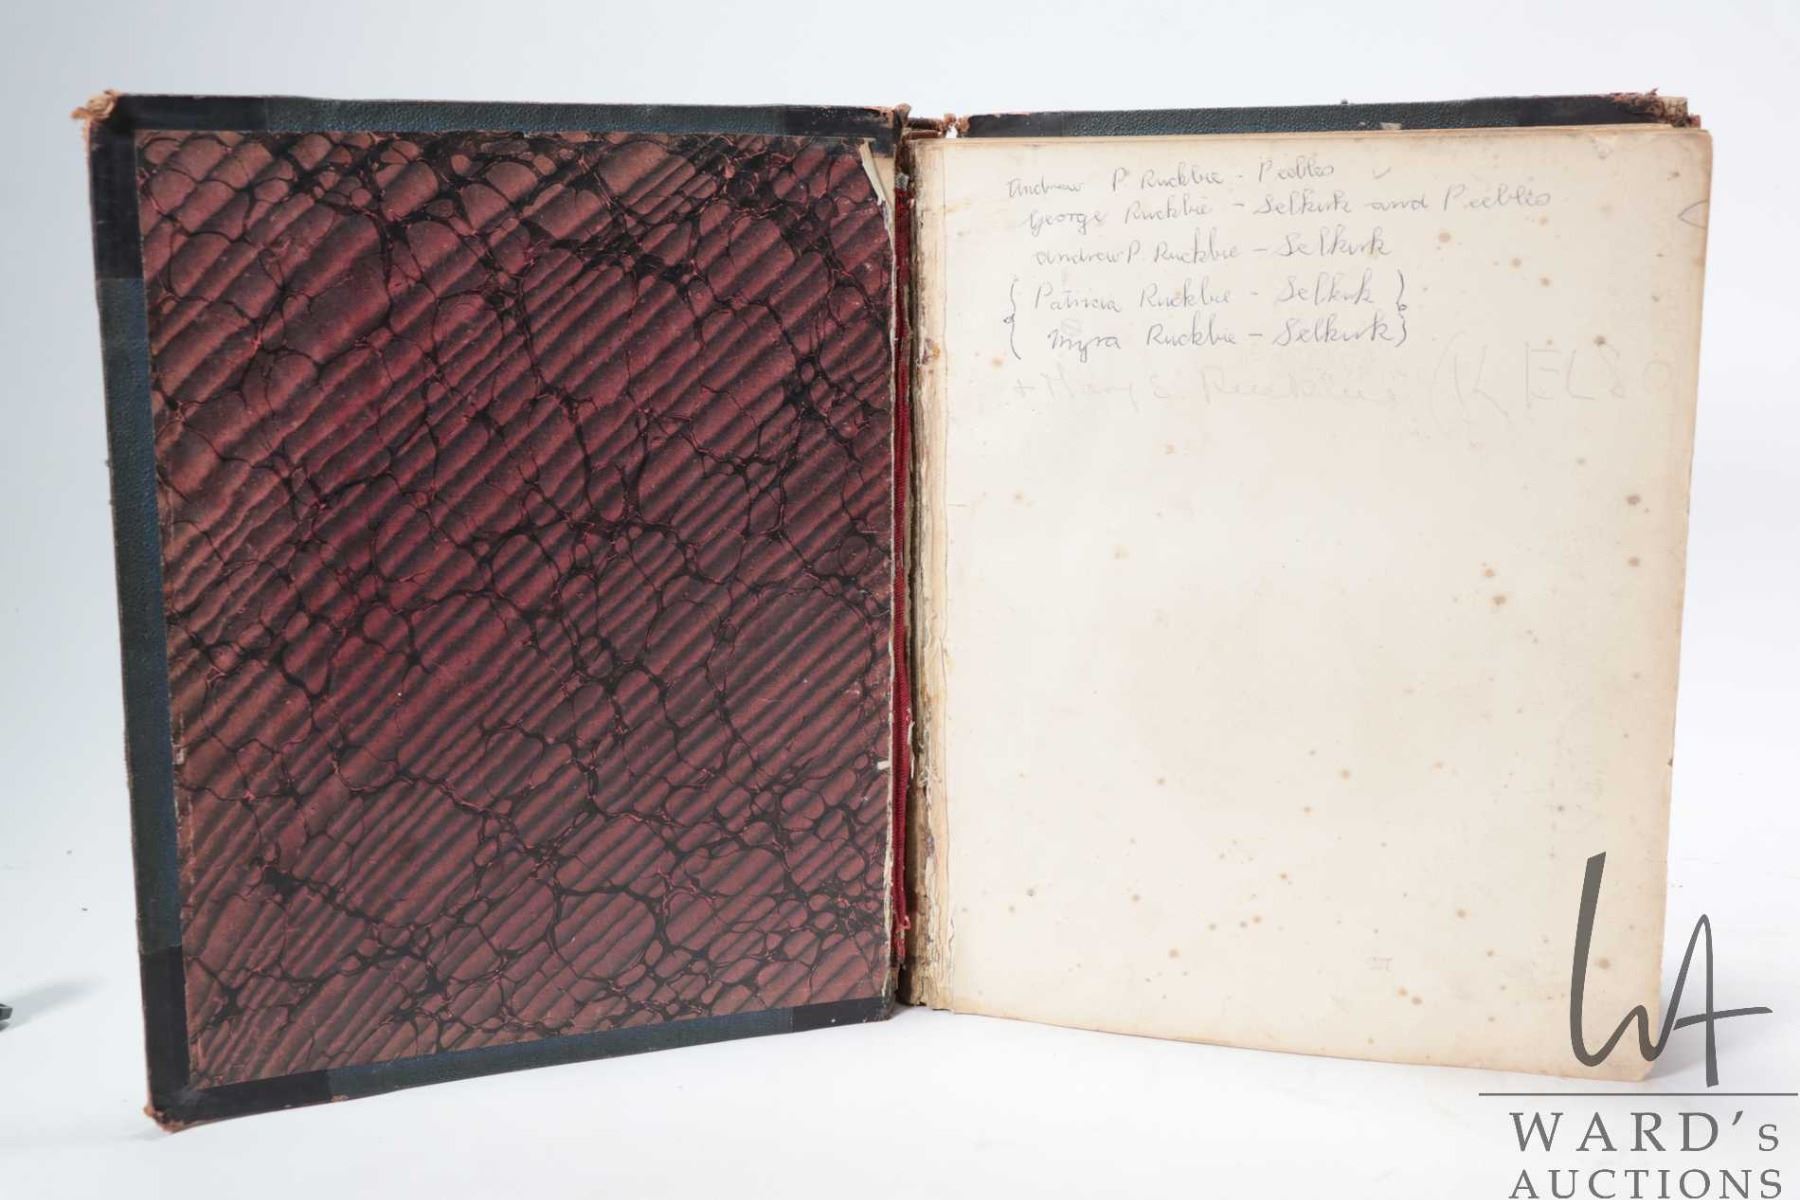 Andrew P. Ruckbie - Peebles ✓
George Ruckbie - Selkirk and Peebles
Andrew P. Ruckbie - Selkirk
{ Patricia Ruckbie - Selkirk }
{ Myra Ruckbie - Selkirk }
+ Mary E. Ruckbie (KELSO
WA
WARD's
AUCTIONS